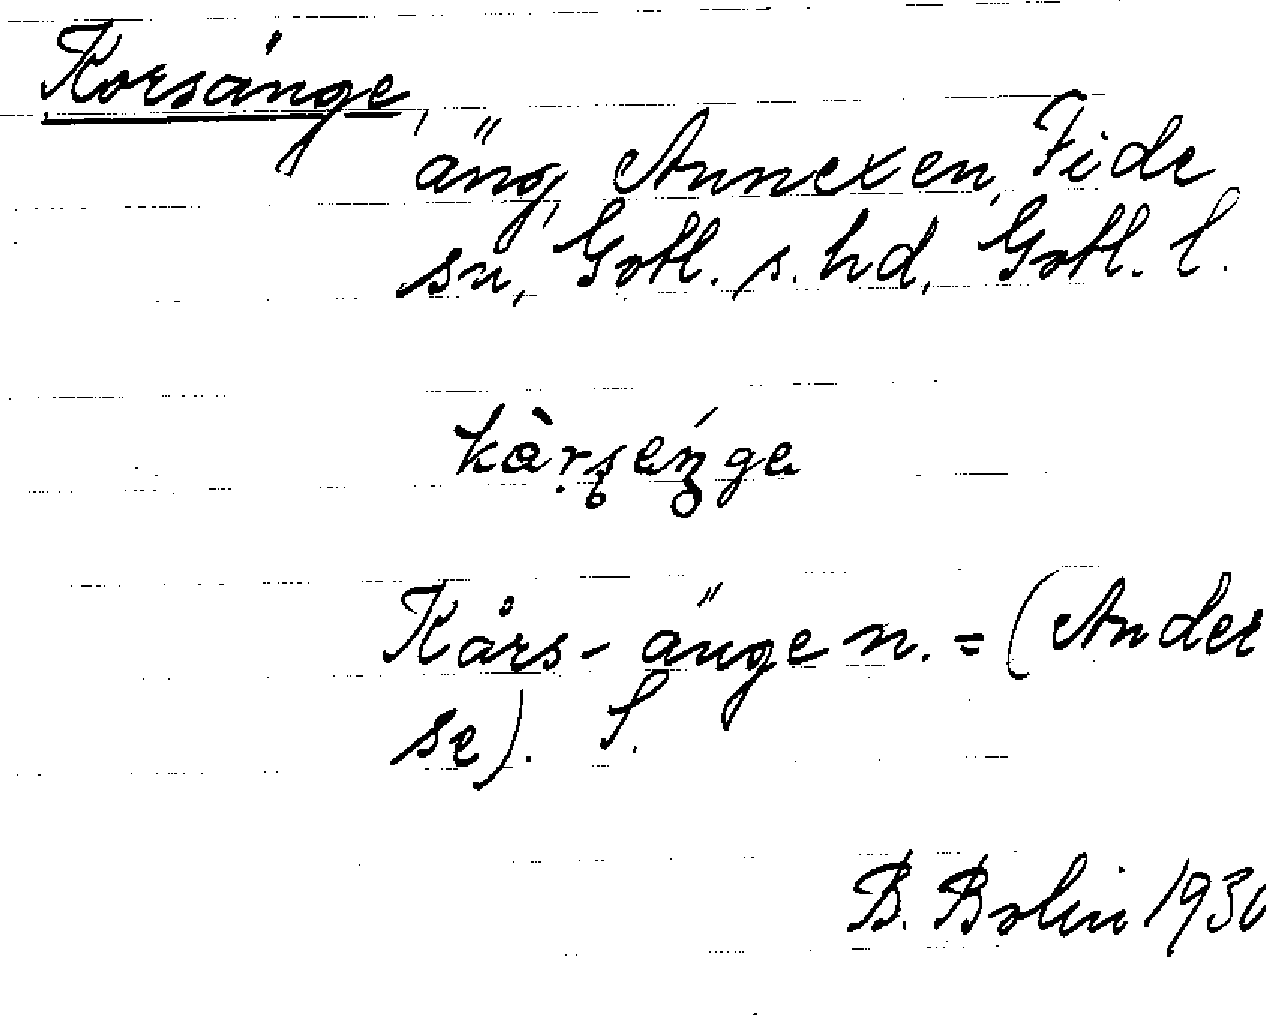 Korsänge,
äng, Annexen, Fide
sn, Gotl. s. hd, Gotl. l.
kàrsénge
Kårs-änge n. = (Ander
se). S.
B. Bolin 1930